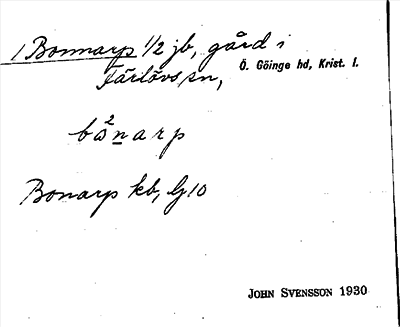 1 Bonnarp 1/2 jb, gård i
Färlövs sn, Ö. Göinge hd, Krist. l.
bo²narp
Bonarp kb, Gj 10
JOHN SVENSSON 1930